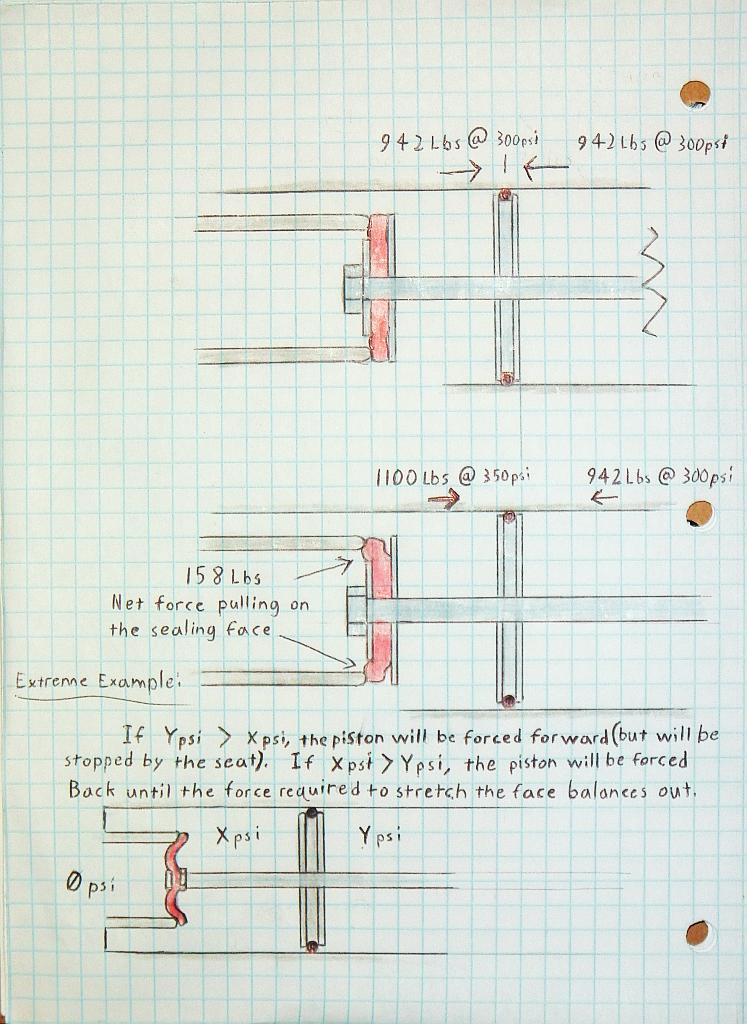 942 Lbs @ 300psi 942 Lbs @ 300psi
1100 Lbs @ 350psi 942 Lbs @ 300psi
158 Lbs
Net force pulling on
the sealing face
Extreme Example:
If Ypsi > Xpsi, the piston will be forced forward (but will be
stopped by the seat). If Xpsi > Ypsi, the piston will be forced
Back until the force required to stretch the face balances out.
Xpsi Ypsi
0 psi